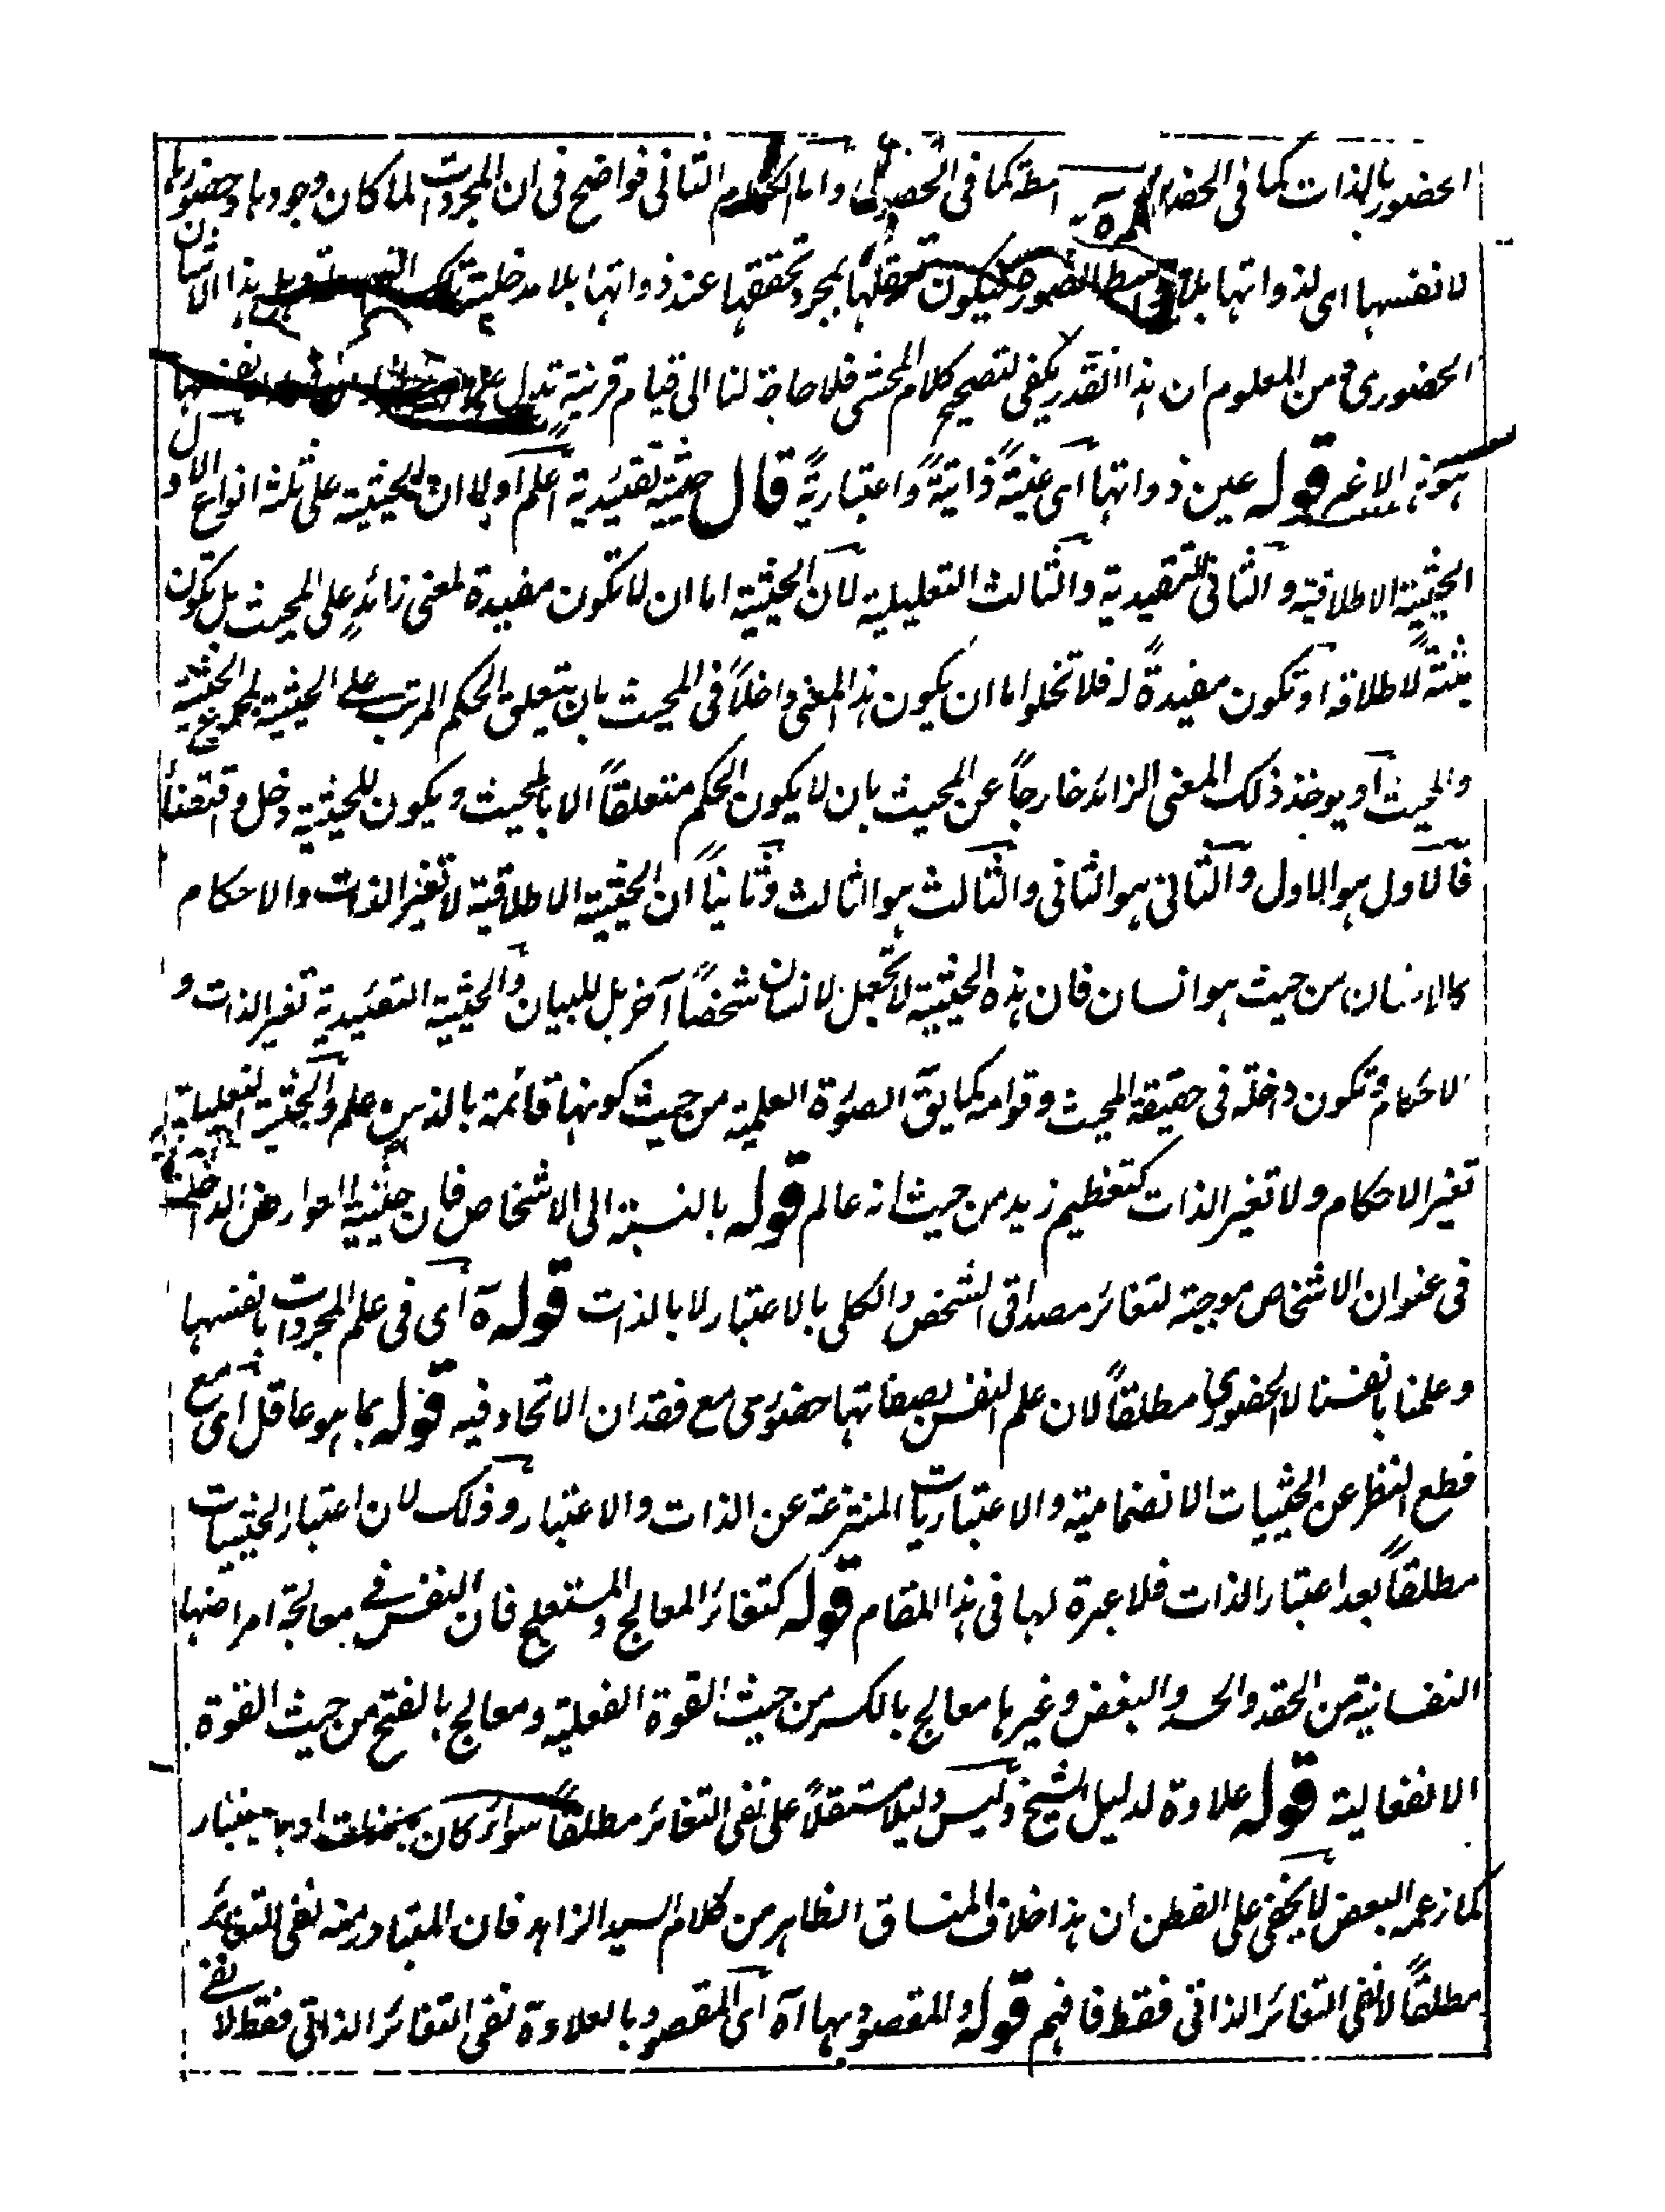 الحضور بالذات كما فى اسطة كما فى الحصولى واما الكلام الثانى فواضح فى ان المجردات لما كان وجودها وحضورها
لانفسها اى لذواتها بلا الصور فيكون تعقلها بمجرد تحققها عند ذواتها بلا مدخلية تلك هذا الاشان
الحضورى ومن المعلوم ان هذا القدر يكفى لتصحيح كلام المحشى فلا حاجة لنا الى قيام قرينة تدل على
قوله عين ذواتها اى عينيةً ذاتيةً واعتباريةً قال حيثية تقييدية اعلم اولا ان الحيثية على ثلثة انواع الاول
الحيثية الاطلاقية والثانى التقييدية والثالث التعليلية لان الحيثية اما ان لا تكون مفيدة لمعنى زائدٍ على المحيث بل تكون
مثبتةً لاطلاقه او تكون مفيدةً له فلا تخلو اما ان يكون هذا المعنى داخلاً فى المحيث بان يتعلق الحكم المرتب على الحيثية بمجموع الحيثية
والمحيث او يوخذ ذلك المعنى الزائد خارجاً عن المحيث بان لا يكون الحكم متعلقاً الا بالمحيث ويكون للحيثية دخل واقتضاءً
فالاول هو الاول والثانى هو الثانى والثالث هو الثالث وثانياً ان الحيثية الاطلاقية لا تغير الذات والاحكام
كالانسان من حيث هو انسان فان هذه الحيثية لا تجعل الانسان شخصاً آخر بل للبيان والحيثية التقييدية تغير الذات و
الاحكام وتكون داخلة فى حقيقة المحيث وقوامه كما يق الصورة العلمية من حيث كونها قائمة بالذهن علم والحيثية التعليلية
تغير الاحكام ولا تغير الذات كتعظيم زيد من حيث انه عالم قوله بالنسبة الى الاشخاص فان حيثية العوارض الداخلة
فى عنوان الاشخاص موجبة لتغائر مصداقى الشخص والكلى بالاعتبار لا بالذات قوله ة اى فى علم المجردات بانفسها
وعلمنا بانفسنا لا الحضورى مطلقاً لان علم النفس بصفاتها حضورى مع فقدان الاتحاد فيه قوله بما هو عاقل اى مع
قطع النظر عن الحيثيات الانضمامية والاعتباريات المنتزعة عن الذات والاعتبار وذلك لان اعتبار الحيثيات
مطلقاً بعد اعتبار الذات فلا عبرة لها فى هذا المقام قوله كتغائر المعالج والمستعلج فان النفس فى معالجة امراضها
النفسانية من الحقد والحسد والبغض وغيرها معالج بالكسر من حيث القوة الفعلية ومعالج بالفتح من حيث القوة
الانفعالية قوله علاوة لدليل الشيخ وليس دليلا مستقلاً على نفى التغائر مطلقاً سواء كان
كما زعمه البعض لا يخفى على الفطن ان هذا خلاف المنساق الظاهر من كلام السيد الزاهد فان المتبادر منه نفى التغائر
مطلقاً لا نفى التغائر الذاتى فقط فافهم قوله والمقصود بها آة اى المقصود بالعلاوة نفى التغائر الذاتى فقط لا نفى